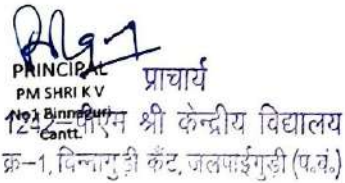 PRINCIPAL
प्राचार्य
PM SHRI K V
No1 Binnaguri
Cantt.
1242-पीएम श्री केन्द्रीय विद्यालय
क्र-1, विन्नागुड़ी कैंट, जलपाईगुड़ी (प.बं.)